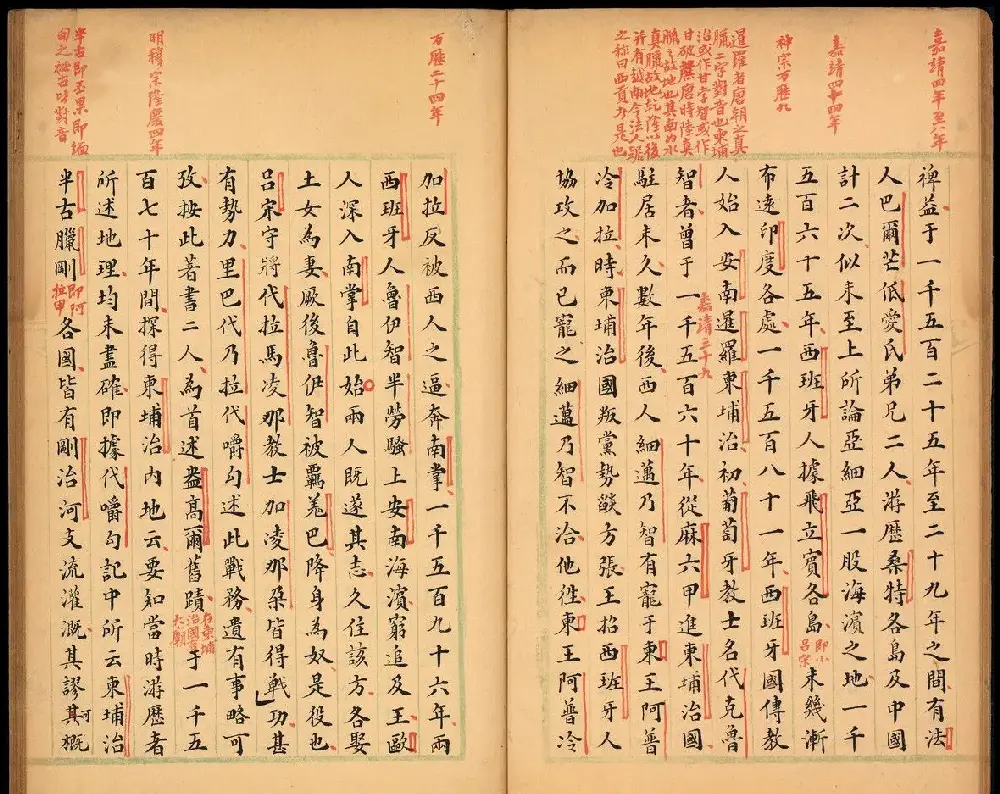 嘉靖四年至八年
嘉靖四十四年
神宗万歷九
暹羅者唐朝之真
臘二字對音也柬埔
治或作甘孛智或作
甘破蔗唐時陸真
臘之故地也其南為水
真臘故地乾隆以後
并有越南今法人踞
之称曰西貢外是也
裨益于一千五百二十五年至二十九年之間有法
人巴爾芒低愛氏弟兄二人游歷桑特各島及中國
計二次似未至上所論亞細亞一股海濱之地一千
五百六十五年西班牙人據飛立賓各島即小呂宗未幾漸
布達印度各處一千五百八十一年西班牙國傳教
人始入安南暹羅柬埔治初葡萄牙教士名代克魯
智者曾于一千五百六十年從麻六甲進柬埔治國
嘉靖三十九
駐居未久數年後西人細邁乃智有寵于柬王阿普
冷加拉時柬埔治國叛黨勢燄方張王招西班牙人
協攻之而已寵之細邁乃智不洽他徃柬王阿普冷
万歷二十四年
明穆宗隆慶四年
半古即丕果即緬
甸之秘古對音
加拉反被西人之逼奔南掌一千五百九十六年兩
西班牙人魯伊智半勞騷上安南海濱窮追及王歐
人深入南掌自此始兩人既遂其志久住該方各娶
土女為妻厥後魯伊智被羈羗巴降身為奴是役也
呂宋守將代拉馬凌那教士加凌那朶皆得戰功甚
有勢力里巴代乃拉代嚼勾述此戰務遺有事略可
攷按此著書二人為首述盎高爾舊蹟在柬埔治國大廟于一千五
百七十年間探得柬埔治內地云要知當時游歷者
所述地理均未盡確即據代嚼勾記中所云柬埔治
半古臘剛即阿拉甲各國皆有剛治河支流灌溉其謬其河概